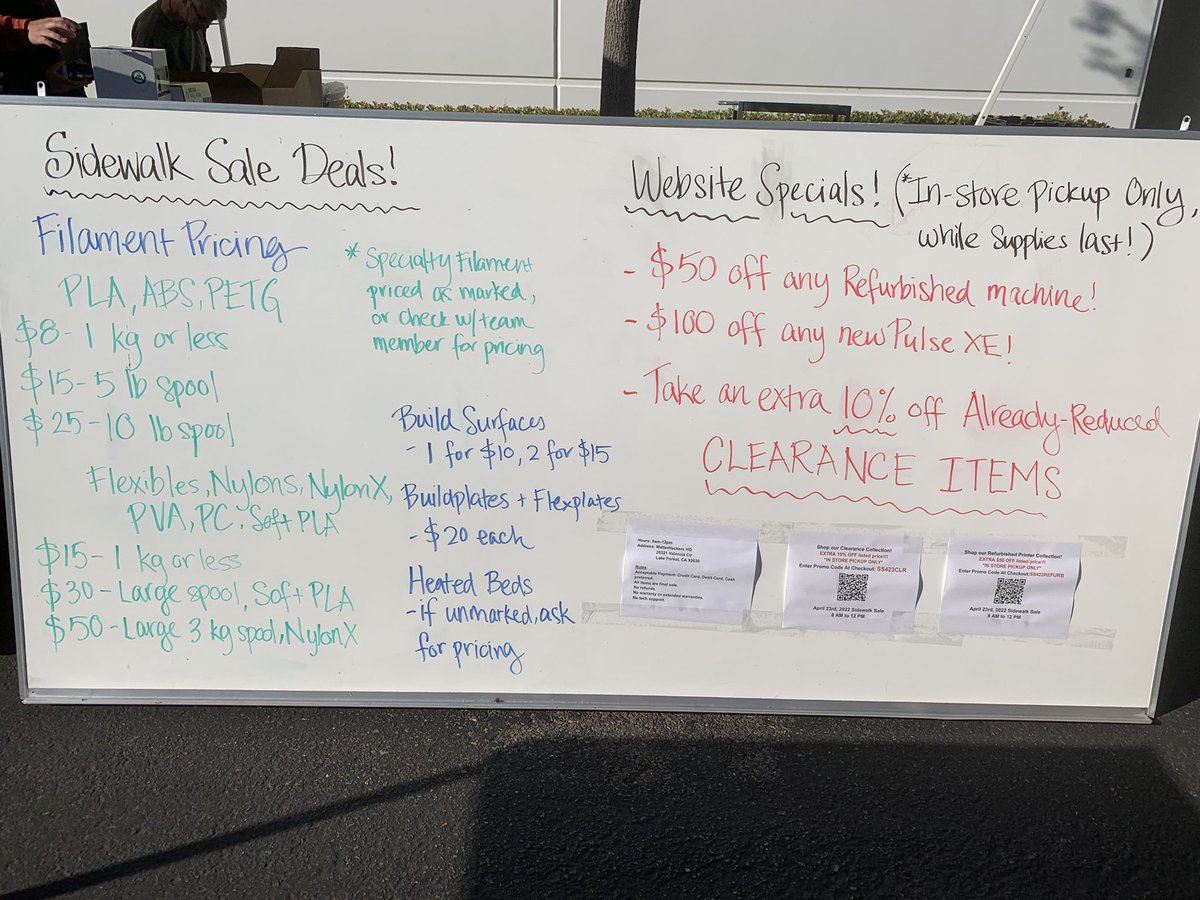 Sidewalk Sale Deals!
Filament Pricing
PLA, ABS, PETG
$8 - 1 kg or less
$15 - 5 lb spool
$25 - 10 lb spool
Flexibles, Nylons, NylonX,
PVA, PC, Soft PLA
$15 - 1 kg or less
$30 - Large spool, Soft PLA
$50 - Large 3 kg spool, NylonX
* Specialty Filament
priced as marked,
or check w/team
member for pricing
Build Surfaces
- 1 for $10, 2 for $15
Buildplates + Flexplates
- $20 each
Heated Beds
- If unmarked, ask
for pricing
Website Specials! (*In-store Pickup Only,
while Supplies last!)
- $50 off any Refurbished machine!
- $100 off any new Pulse XE!
- Take an extra 10% off Already-Reduced
CLEARANCE ITEMS
Hours: 8am-12pm
Address: MatterHackers HQ
20321 Valencia Cir
Lake Forest, CA 92630
Rules:
Acceptable Payment: Credit Card, Debit Card, Cash
preferred.
All items are final sale.
No refunds
No warranty or extended warranties.
No tech support.
Shop our Clearance Collection!
EXTRA 10% OFF listed price!!!
*IN STORE PICKUP ONLY*
Enter Promo Code At Checkout: SS423CLR
April 23rd, 2022 Sidewalk Sale
8 AM to 12 PM
Shop our Refurbished Printer Collection!
EXTRA $50 OFF listed price!!!
*IN STORE PICKUP ONLY*
Enter Promo Code At Checkout: SS423REFURB
April 23rd, 2022 Sidewalk Sale
8 AM to 12 PM